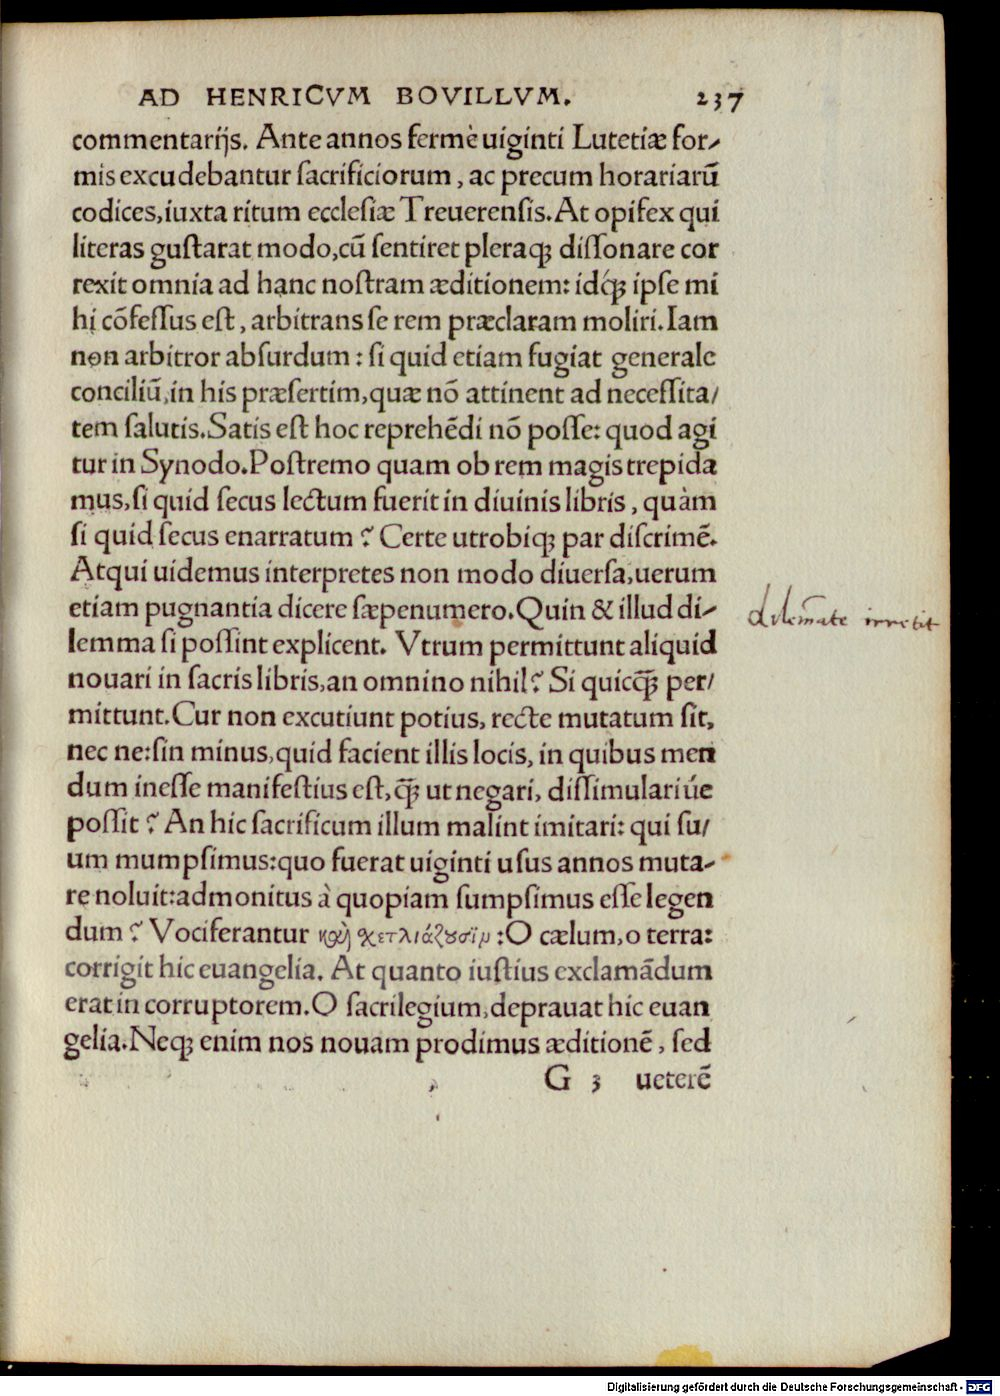 AD HENRICVM BOVILLVM. 237
commentarijs. Ante annos fermè uiginti Lutetiæ for⸗
mis excudebantur ſacrificiorum, ac precum horariarũ
codices, iuxta ritum eccleſiæ Treuerenſis. At opifex qui
literas guſtarat modo, cũ ſentiret pleraqꝫ diſſonare cor
rexit omnia ad hanc noſtram æditionem: idq́ꝫ ipſe mi
hi cõfeſſus eſt, arbitrans ſe rem præclaram moliri. Iam
non arbitror abſurdum: ſi quid etiam fugiat generale
conciliũ, in his præſertim, quæ nõ attinent ad neceſſita/
tem ſalutis. Satis eſt hoc reprehẽdi nõ poſſe: quod agi
tur in Synodo. Poſtremo quam ob rem magis trepida
mus, ſi quid ſecus lectum fuerit in diuinis libris, quàm
ſi quid ſecus enarratum? Certe utrobiqꝫ par diſcrimẽ.
Atqui uidemus interpretes non modo diuerſa, uerum
etiam pugnantia dicere ſæpenumero. Quin & illud di⸗
lemma ſi poſſint explicent. Vtrum permittunt aliquid
nouari in ſacris libris, an omnino nihil? Si quicq̃ꝫ per/
mittunt. Cur non excutiunt potius, recte mutatum ſit,
nec ne: ſin minus, quid facient illis locis, in quibus men
dum ineſſe manifeſtius eſt, q̃ꝫ ut negari, diſſimulariúe
poſſit? An hic ſacrificum illum malint imitari: qui ſu/
um mumpſimus: quo fuerat uiginti uſus annos muta⸗
re noluit: admonitus à quopiam ſumpſimus eſſe legen
dum? Vociferantur καὶ χετλιάζουσϊν: O cælum, o terra:
corrigit hic euangelia. At quanto iuſtius exclamãdum
erat in corruptorem. O ſacrilegium, deprauat hic euan
gelia. Neqꝫ enim nos nouam prodimus æditionẽ, ſed
G 3 ueterẽ
dilem̃ate irretit
Digitalisierung gefördert durch die Deutsche Forschungsgemeinschaft - DFG